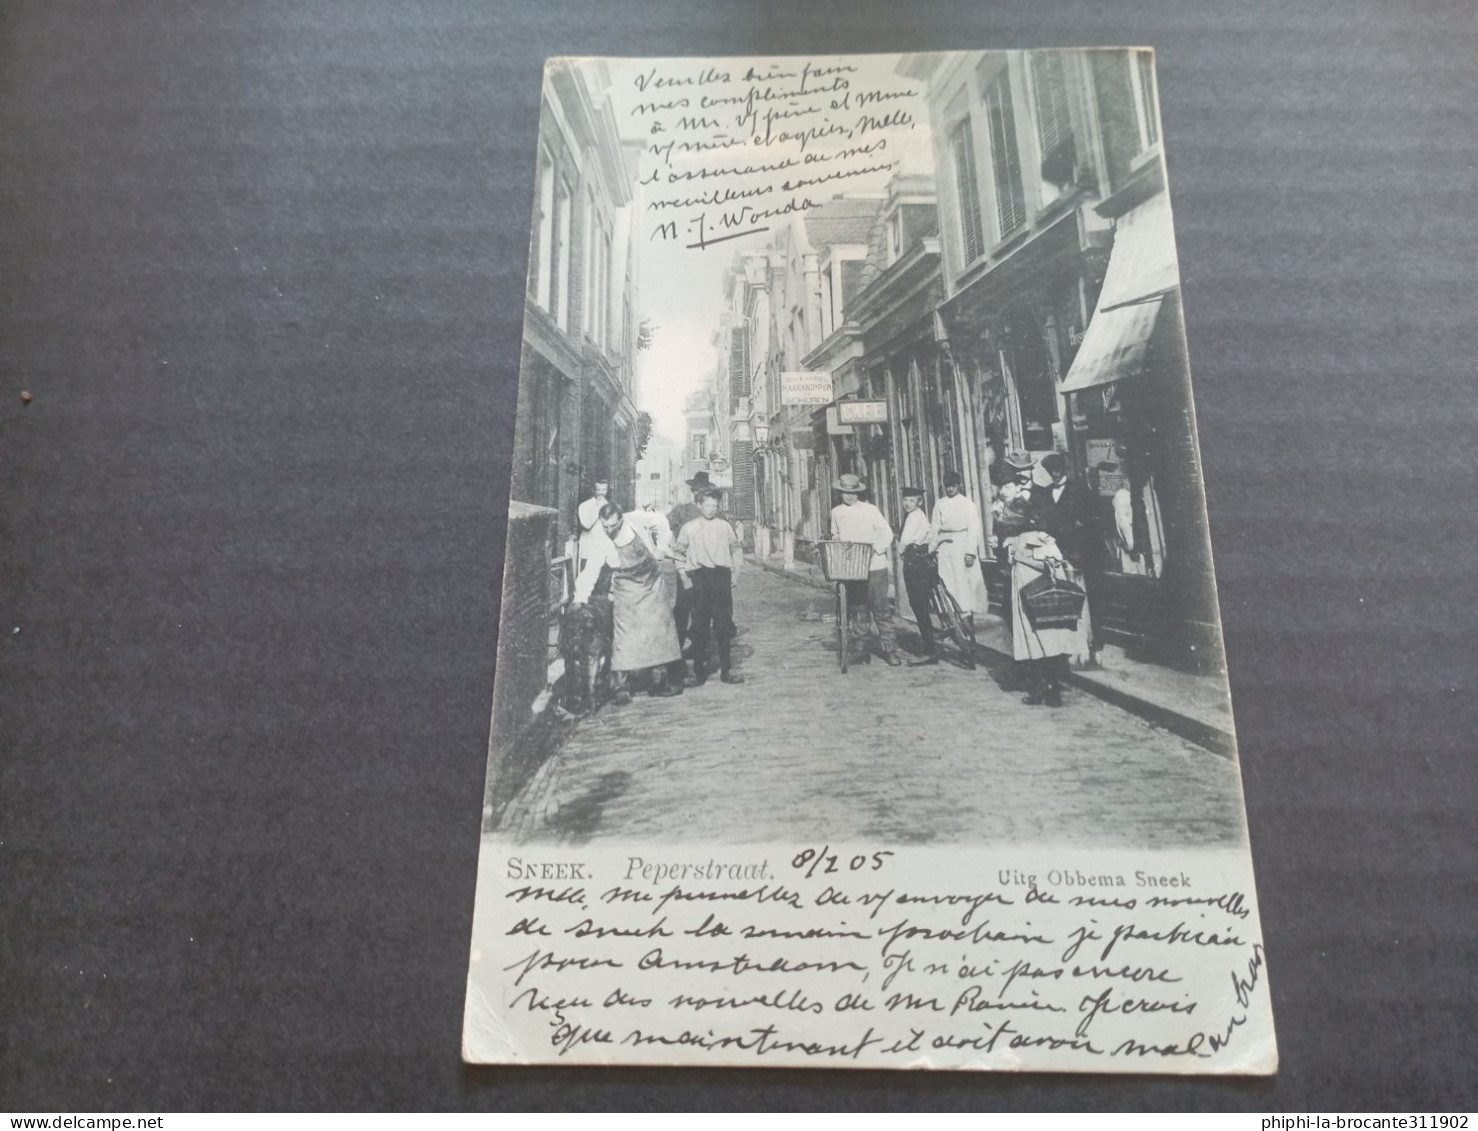 Veuillez bien fair
mes compliments
à Mr. v/ père et Mme
v/ mère. et agréer, Melle,
l'assurance de mes
meilleurs souvenirs
N. J. Wouda
HAARKNIPPEN
SCHEREN
SNEEK. Peperstraat. 8/1 05
Uitg Obbema Sneek
Melle, me permettez de v/ envoyer de mes nouvelles
de Sneek la semain prochain je partirai
pour Amsterdam, Je n'ai pas encore
reçu des nouvelles de Mr Je crois
que maintenant il doit avoir mal
au bras
phiphi-la-brocante311902
delcampe.net